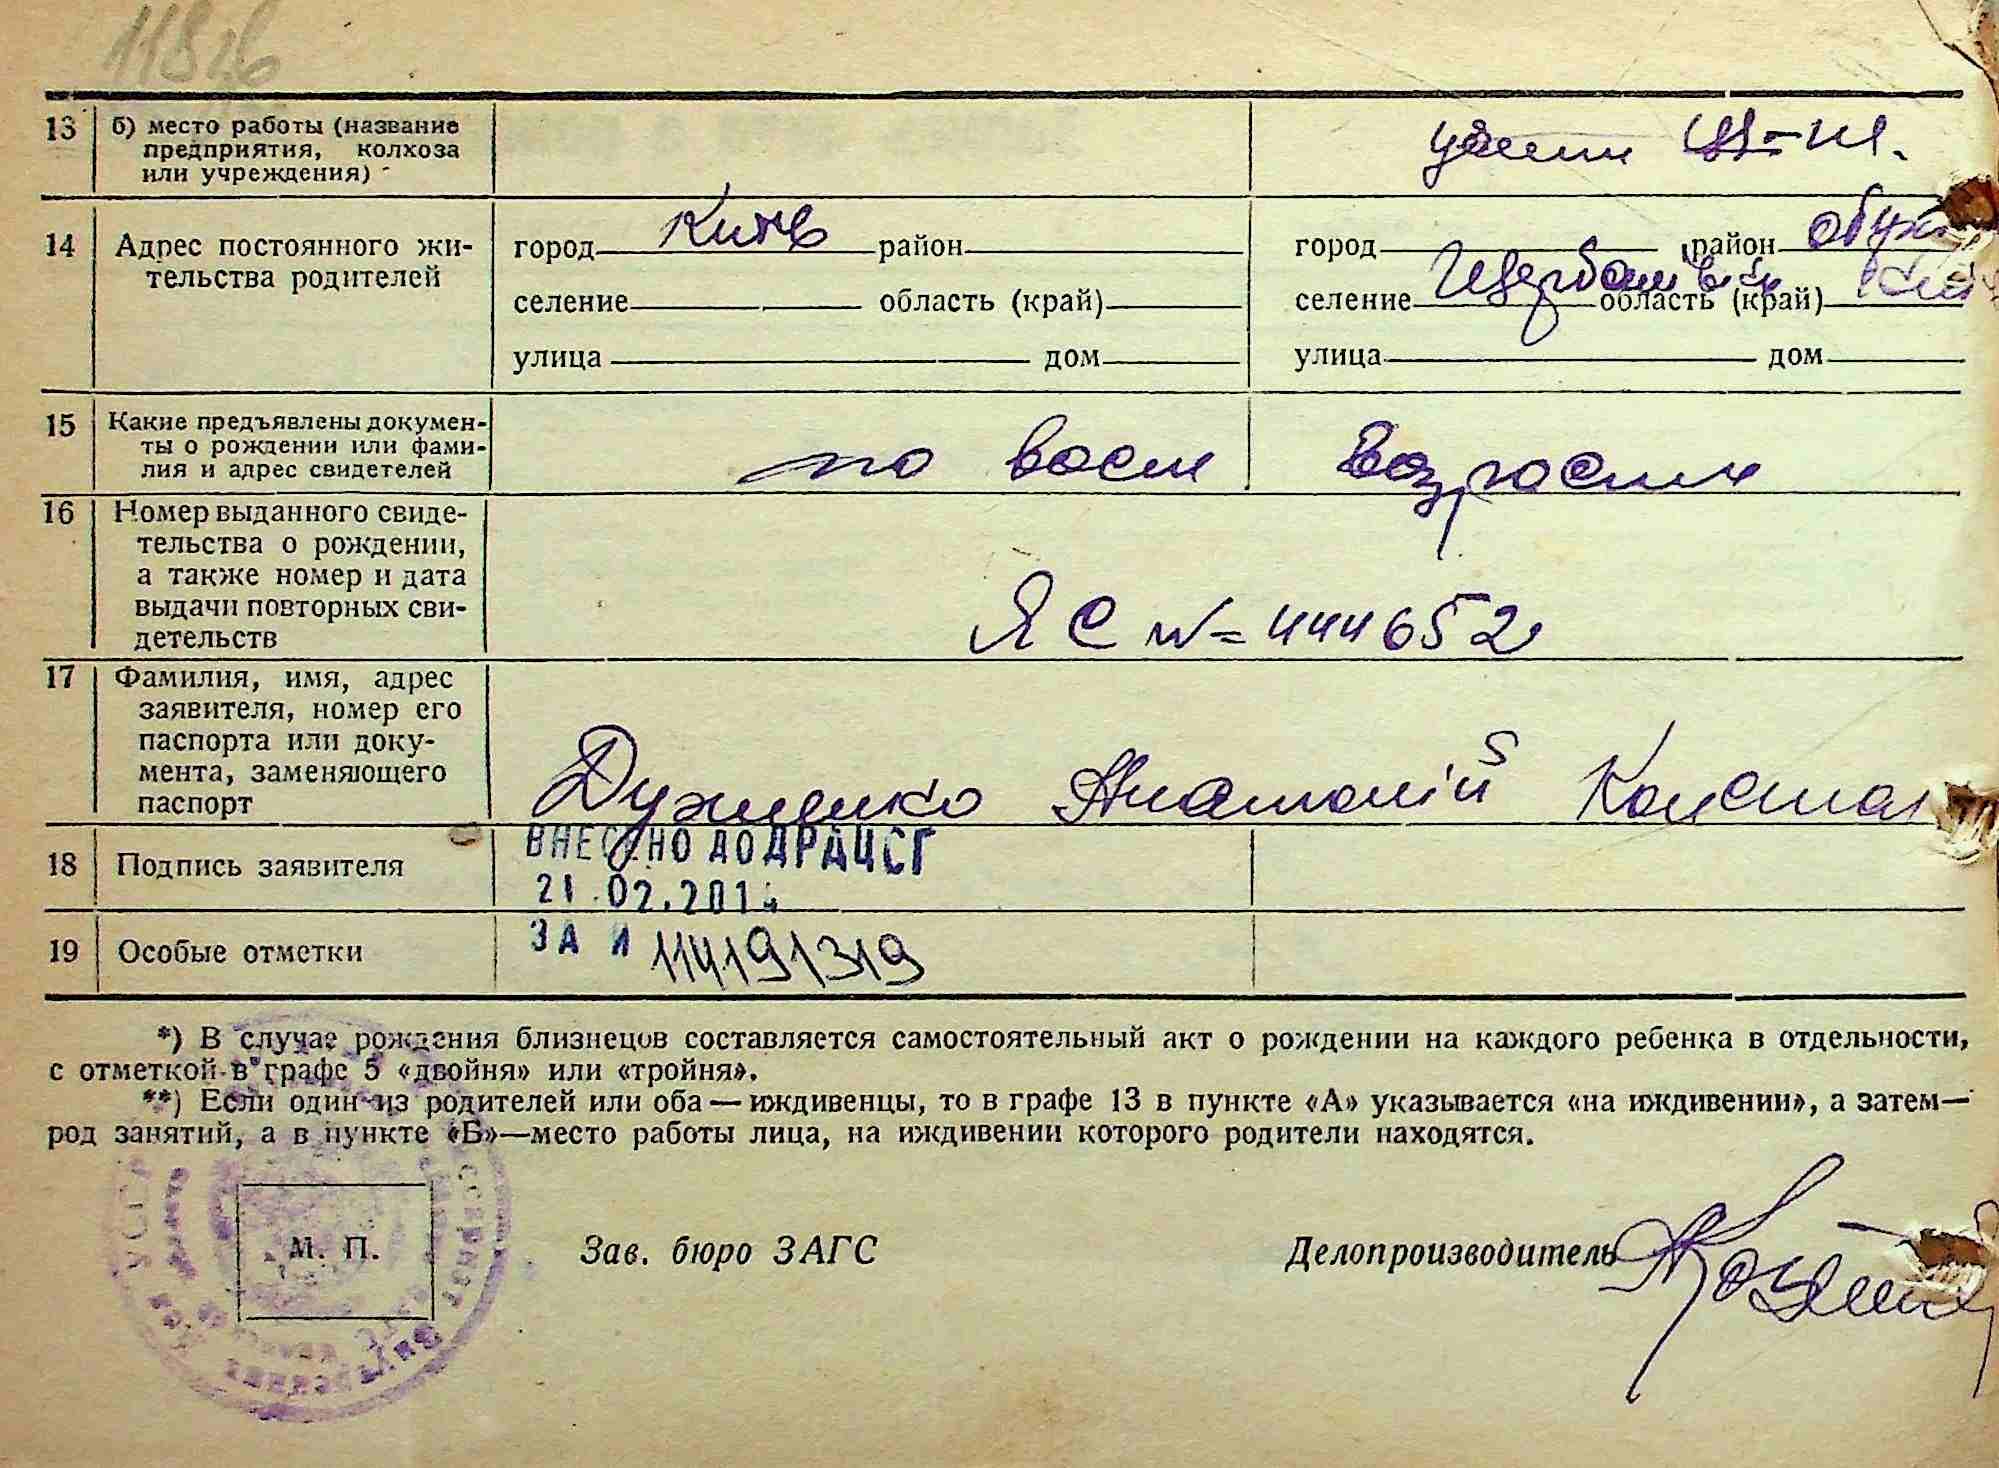 13 б) место работы (название
предприятия, колхоза
или учреждения)
14 Адрес постоянного жи-
тельства родителей
город Київ район
селение область (край)
улица дом
город район
селение область (край)
улица дом
15 Какие предъявлены докумен-
ты о рождении или фами-
лия и адрес свидетелей
по возрасти
16 Номер выданного свиде-
тельства о рождении,
а также номер и дата
выдачи повторных сви-
детельств
ЯС № 444652
17 Фамилия, имя, адрес
заявителя, номер его
паспорта или доку-
мента, заменяющего
паспорт
Анатолій
18 Подпись заявителя
ВНЕСЕНО ДО ДРАЦСГ
21.02.201
19 Особые отметки
ЗА № 114191319
*) В случае рождения близнецов составляется самостоятельный акт о рождении на каждого ребенка в отдельности,
с отметкой в графе 5 «двойня» или «тройня».
**) Если один из родителей или оба — иждивенцы, то в графе 13 в пункте «А» указывается «на иждивении», а затем—
род занятий, а в пункте «Б»—место работы лица, на иждивении которого родители находятся.
М. П.
Зав. бюро ЗАГС
Делопроизводитель